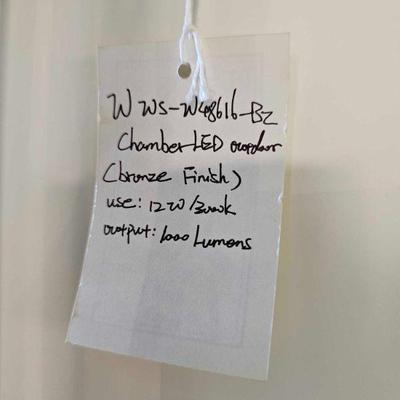 W WS-W48616-BZ
Chamber LED outdoor
(bronze Finish)
use: 12W/3000k
output: 1000 Lumens